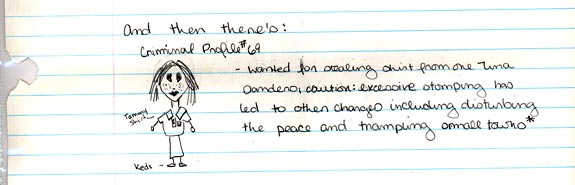 and then there's:
Criminal Profile #69
- wanted for stealing shirt from one Tina
Damdero; caution: excessive stomping has
led to other changes including disturbing
the peace and trampling small towns*
Tommy
Shirt
Keds -